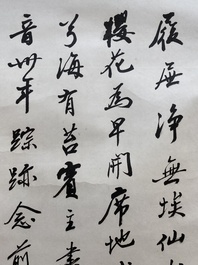 淨無埃仙
櫻花為早開席地
海有苔賓主
音卅年踪跡念前